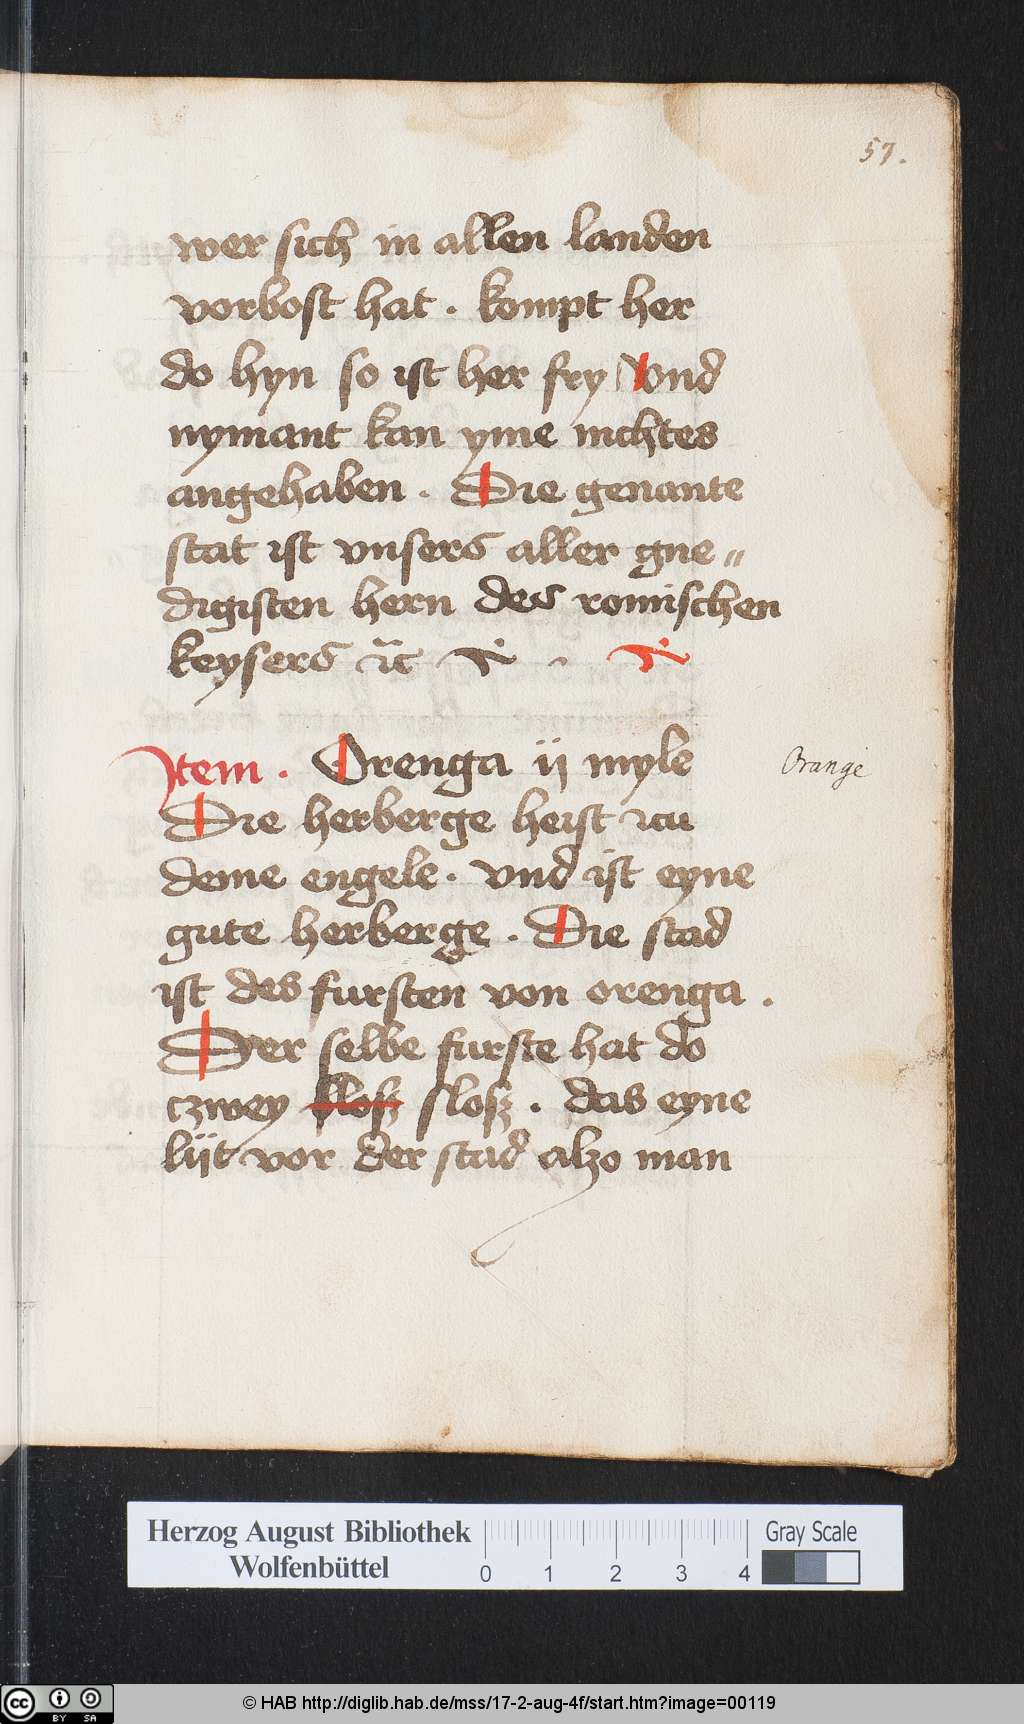 57.
wer sich in allen landen
vorbost hat . kompt her
do hyn so ist her fry Vnd
nymant kan yme nichtes
angehaben . Die genante
stat ist vnsers aller gne〃
digisten hern des romischen
keysers ꝛc
Item . Orenga ij myle
Orange
Die herberge heist zcu
deme engele . vnd ist eyne
gute herberge . Die stad
ist des fursten von orenga .
Der selbe furste hat do
czwey sloß . das eyne
lijt vor der stad alzo man
Herzog August Bibliothek
Wolfenbüttel
0 1 2 3 4
Gray Scale
cc BY SA
© HAB http://diglib.hab.de/mss/17-2-aug-4f/start.htm?image=00119